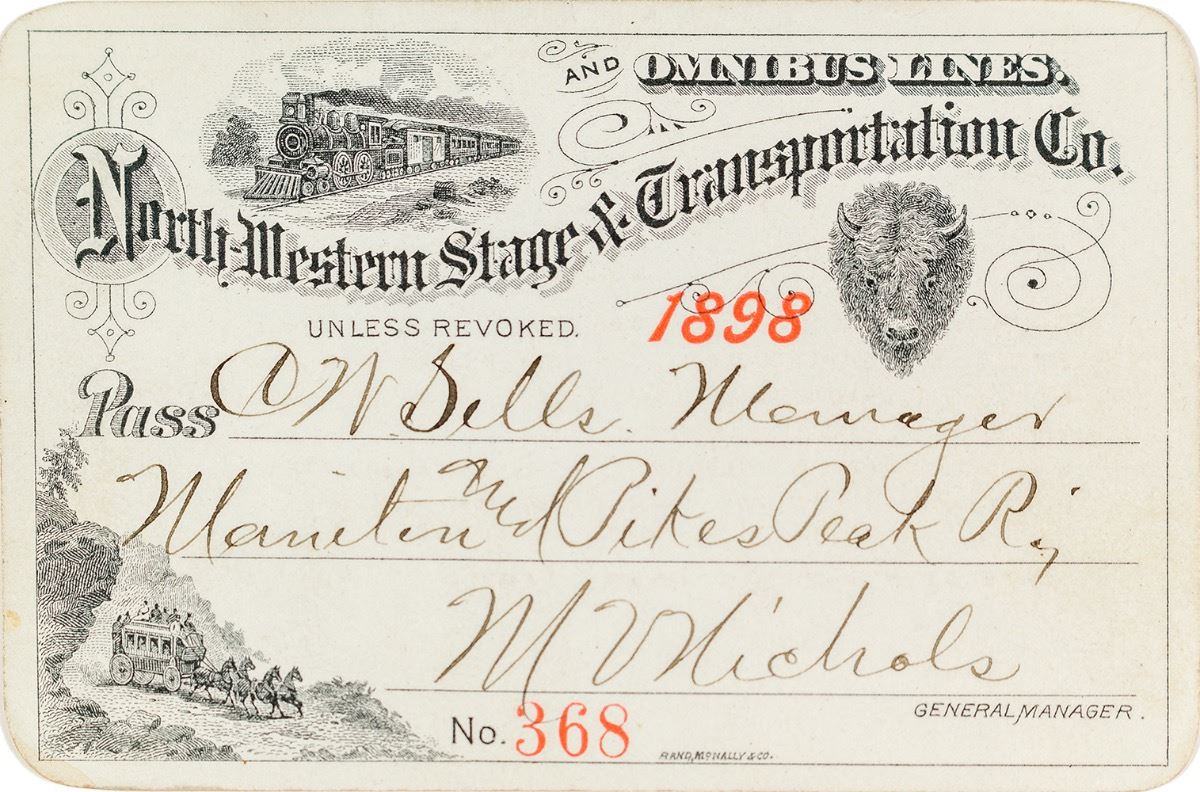 AND OMNIBUS LINES.
North-Western Stage & Transportation Co.
UNLESS REVOKED. 1898
Pass C W Sells. Manager
Maniton and Pikes Peak Ry
M V Nichols
GENERAL MANAGER.
No. 368
RAND, McNALLY & CO.